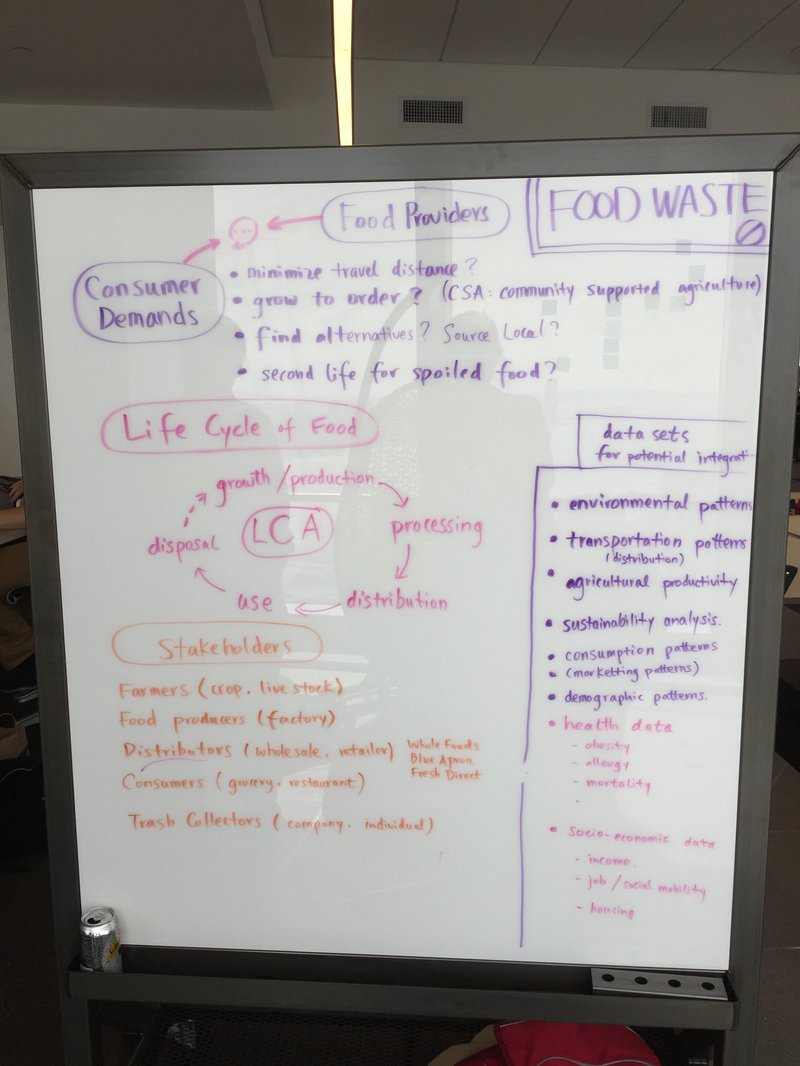 FOOD WASTE
Food Providers
Consumer
Demands
• minimize travel distance?
• grow to order? (CSA: community supported agriculture)
• find alternatives? Source Local?
• second life for spoiled food?
Life Cycle of Food
growth/production
processing
distribution
use
disposal
LCA
Stakeholders
Farmers (crop, live stock)
Food producers (factory)
Distributors (wholesale, retailer)
Whole Foods
Blue Apron
Fresh Direct
Consumers (grocery, restaurant)
Trash Collectors (company, individual)
data sets
for potential integrat
• environmental patterns
• transportation patterns
(distribution)
• agricultural productivity
• sustainability analysis.
• consumption patterns
• (marketting patterns)
• demographic patterns.
• health data
- obesity
- allergy
- mortality
-
• socio-economic data
- income.
- job/social mobility
- housing